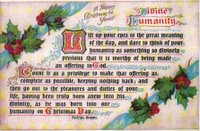 A Happy
Christmas to
Yours!
Divine
Humanity.
Lift up your eyes to the great meaning
of the day, and dare to think of your
humanity as something so divinely
precious that it is worthy of being made
an offering to God.
Count it as a privilege to make that offering as
complete as possible, keeping nothing back; and
then go out to the pleasures and duties of your
life, having been truly born anew into his
divinity, as he was born into our
humanity on Christmas Day.
Phillips Brooks.